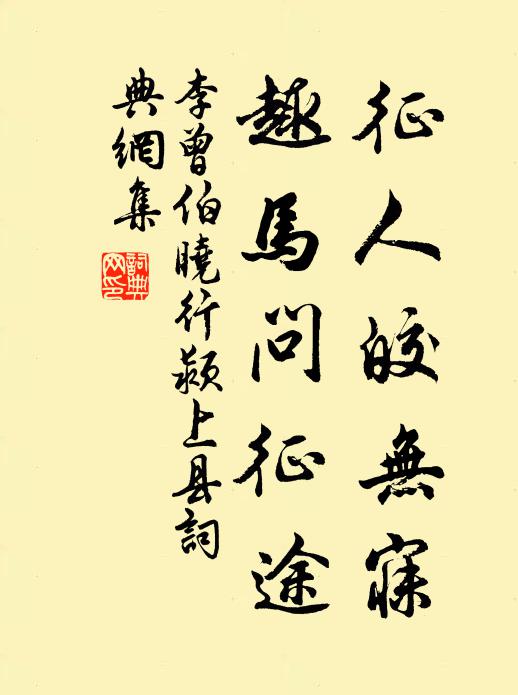 征人皎無寐
趣馬問征途
李曾伯曉行潁上县詞
典網集
詞典网印